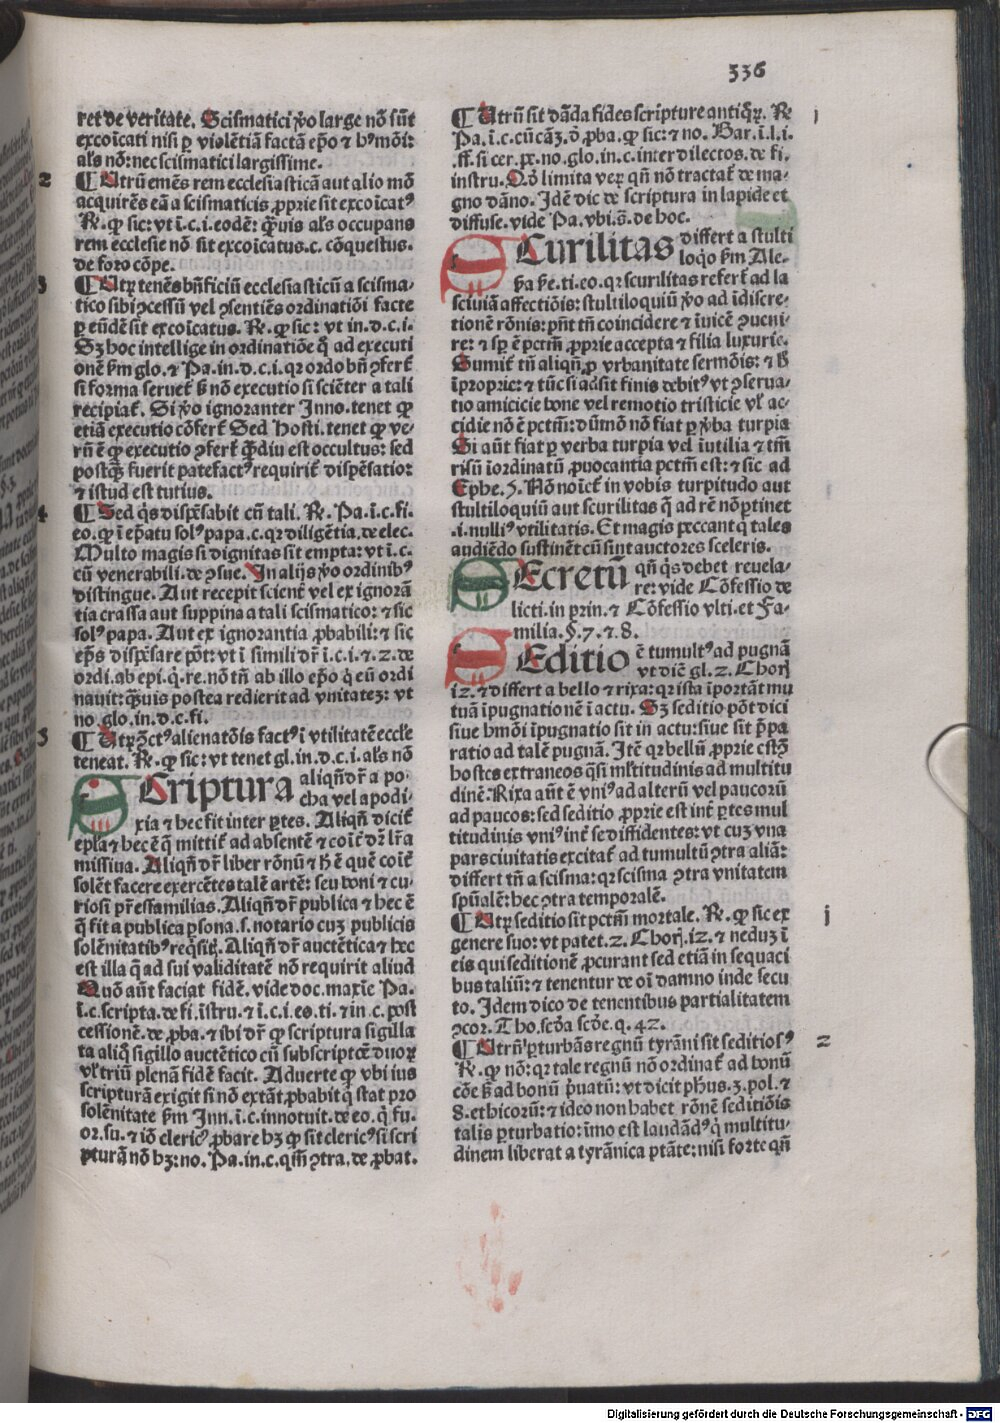 336
ret de veritate. Scismatici ꝟo large nō sūt
excoīcati nisi ꝑ violētiā factā ep̄o ⁊ hꝰmōi:
als nō: nec scismatici largissime.
2
¶ Utrū emēs rem ecclesiasticā aut alio mō
acquirēs eā a scismaticis ꝓprie sit excoīcatꝰ
R̄. ꝙ sic: vt ī. c. i. eodē: q̄uis als occupans
rem ecclesie nō sit excoīcatus. c. cōquestus.
de foro cōpe.
3
¶ Utrꝫ tenēs bn̄ficiū ecclesiasticū a scisma-
tico sibi ꝯcessū vel ꝯsentiēs ordinatiōi facte
ꝑ eūdē sit excoīcatus. R̄. ꝙ sic: vt in. d. c. i.
Sꝫ hoc intellige in ordinatiōe q̄ ad executi
onē ẜm glo. ⁊ Pa. in. d. c. i. qꝛ ordo bn̄ ꝯfert̄
si forma seruet̄ ꝫ nō executio si sciēter a tali
recipiat̄. Si ꝟo ignoranter Inno. tenet ꝙ
etiā executio cōfert̄ Sed Hosti. tenet ꝙ ve-
rū ē ꝙ executio ꝯfert̄ q̄diu est occultus: sed
postq̄ꝫ fuerit patefactꝰ requirit̄ dispēsatio:
⁊ istud est tutius.
4
¶ Sed q̇s dispēsabit cū tali. R̄. Pa. ī. c. fi.
eo. ꝙ ī ep̄atu solꝰ papa. c. qꝛ diligētia. de elec.
Multo magis si dignitas sit empta: vt ī. c.
cū venerabili. de ꝯsue. In alijs ꝟo ordinibꝰ
distingue. Aut recepit scient̄ vel ex ignorā
tia crassa aut suppina a tali scismatico: ⁊ sic
solꝰ papa. Aut ex ignorantia ꝓbabili: ⁊ sic
ep̄s dispēsare pōt: vt ī simili dr̄ ī. c. i. ⁊. 2. de
ordi. ab epi. q̇. re. nō tn̄ ab illo ep̄o q̇ eū ordi
nauit: q̄uis postea redierit ad vnitatez: vt
no. glo. in. d. c. fi.
5
¶ Utrꝫ ꝯctꝰ alienatōis factꝰ ī vtilitatē eccl̄e
teneat. R̄. ꝙ sic: vt tenet gl. in. d. c. i. als nō
Scriptura aliqn̄ dr̄ a po-
cha vel apodi-
xia ⁊ hec fit inter ꝑtes. Aliqn̄ dicit̄
epl̄a ⁊ hec ē q̄ mittit̄ ad absentē ⁊ coīt̄ dr̄ lr̄a
missiua. Aliqn̄ dr̄ liber rōnū ⁊ h̄ ē quē coīt̄
solēt facere exercētes talē artē: seu boni ⁊ cu-
riosi pr̄esfamilias. Aliqn̄ dr̄ publica ⁊ hec ē
q̄ fit a publica ꝑsona. s. notario cuꝫ publicis
solēnitatibꝰ reqsitꝭ. Aliqn̄ dr̄ auctētica ⁊ hec
est illa q̄ ad sui validitatē nō requirit aliud
Quō aūt faciat fidē. vide doc. maxīe Pa.
ī. c. scripta. de fi. īstru. ⁊ ī. c. i. eo. ti. ⁊ in c. post
cessionē. de ꝓba. ⁊ ibi dr̄ ꝙ scriptura sigilla
ta aliq̇ sigillo auctētico cū subscriptōe duoꝝ
vl̄ triū plenā fidē facit. Aduerte ꝙ vbi ius
scripturā exigit si nō extāt ꝓbabit q̇ stat pro
solēnitate ẜm Inn. ī. c. innotuit. de eo. q̇ fu.
or. su. ⁊ iō clericꝰ ꝓbare hꝫ ꝙ sit clericꝰ si scri
pturā nō hꝫ: no. Pa. in. c. qm̄ ꝯtra. de ꝓbat.
¶ Utrū sit dāda fides scripture antiq̄ꝝ. R̄
Pa. ī. c. cū cāꝫ. d̄ ꝓba. ꝙ sic: ⁊ no. Bar. ī. l. i.
.ff. si cer. pe. no. glo. in. c. inter dilectos. de fi.
instru. Qd̄ limita veꝝ qn̄ nō tractat̄ de ma-
gno dāno. Idē dic de scriptura in lapide et
diffuse. vide Pa. vbi. s̄. de hoc.
Scurilitas differt a stulti
loq̇o ẜm Ale-
ẜa ẜe. ti. eo. qꝛ scurilitas refert̄ ad la
sciuiā affectiōis: stultiloquiū ꝟo ad īdiscre-
tionē rōnis: pn̄t tn̄ coincidere ⁊ īuicē ꝯueni-
re: ⁊ sꝑ ē pctm̄ ꝓprie accepta ⁊ filia luxurie.
Sumit̄ tn̄ aliqn̄ ꝓ vrbanitate sermōis: ⁊ h̄
īproprie: ⁊ tūc si adsit finis debitꝰ vt ꝯserua-
tio amicicie bone vel remotio tristicie vl̄ ac-
cidie nō ē pctm̄: dūmō nō fiat ꝑ ꝟba turpia
Si aūt fiat ꝑ verba turpia vel īutilia ⁊ tm̄
risū īordinatū ꝓuocantia pctm̄ est: ⁊ sic ad
Ephe. 5. Nō noīet̄ in vobis turpitudo aut
stultiloquiū aut scurilitas q̄ ad rē nō ꝑtinet
.i. nulliꝰ vtilitatis. Et magis peccant q̇ tales
audiēdo sustinēt cū sint auctores sceleris.
Secretū qn̄ q̇s debet reuela-
re: vide Cōfessio de
licti. in prin. ⁊ Cōfessio vlti. et Fa-
milia. §. 7. ⁊. 8.
Seditio ē tumultꝰ ad pugnā
vt dic̄ gl. 2. Chorꝭ
12. ⁊ differt a bello ⁊ rixa: qꝛ ista īportāt mu
tuā īpugnationē ī actu. Sꝫ seditio pōt dici
siue hmōi īpugnatio sit in actu: siue sit p̄pa
ratio ad talē pugnā. Itē qꝛ bellū ꝓprie est ꝯ̄
hostes extraneos q̄si ml̄titudinis ad multitu
dinē. Rixa aūt ē vniꝰ ad alterū vel paucorū
ad paucos: sed seditio ꝓprie est int̄ ꝑtes mul
titudinis vniꝰ int̄ se diffidentes: vt cuꝫ vna
pars ciuitatis excitat̄ ad tumultū ꝯtra aliā:
differt tn̄ a scisma: qꝛ scisma ꝯtra vnitatem
spūalē: hec ꝯtra temporalē.
1
¶ Utrꝫ seditio sit pctm̄ mortale. R̄. ꝙ sic ex
genere suo: vt patet. 2. Chorꝭ. 12. ⁊ neduꝫ ī
eis qui seditionē ꝓcurant sed etiā in sequaci
bus taliū: ⁊ tenentur de oī damno inde secu
to. Idem dico de tenentibus partialitatem
ꝯcor. Tho. scd̄a scd̄e. q. 42.
2
¶ Utrū ꝑturbās regnū tyrāni sit seditiosꝰ
R̄. ꝙ nō: qꝛ tale regnū nō ordinat̄ ad bonū
cōe ꝫ ad bonū p̄uatū: vt dicit ph̄us. 3. pol. ⁊
8. ethicorū: ⁊ ideo non habet rōnē seditiōis
talis ꝑturbatio: īmo est laudādꝰ q̇ multitu-
dinem liberat a tyrānica ptāte: nisi forte qn̄
Digitalisierung gefördert durch die Deutsche Forschungsgemeinschaft - DFG